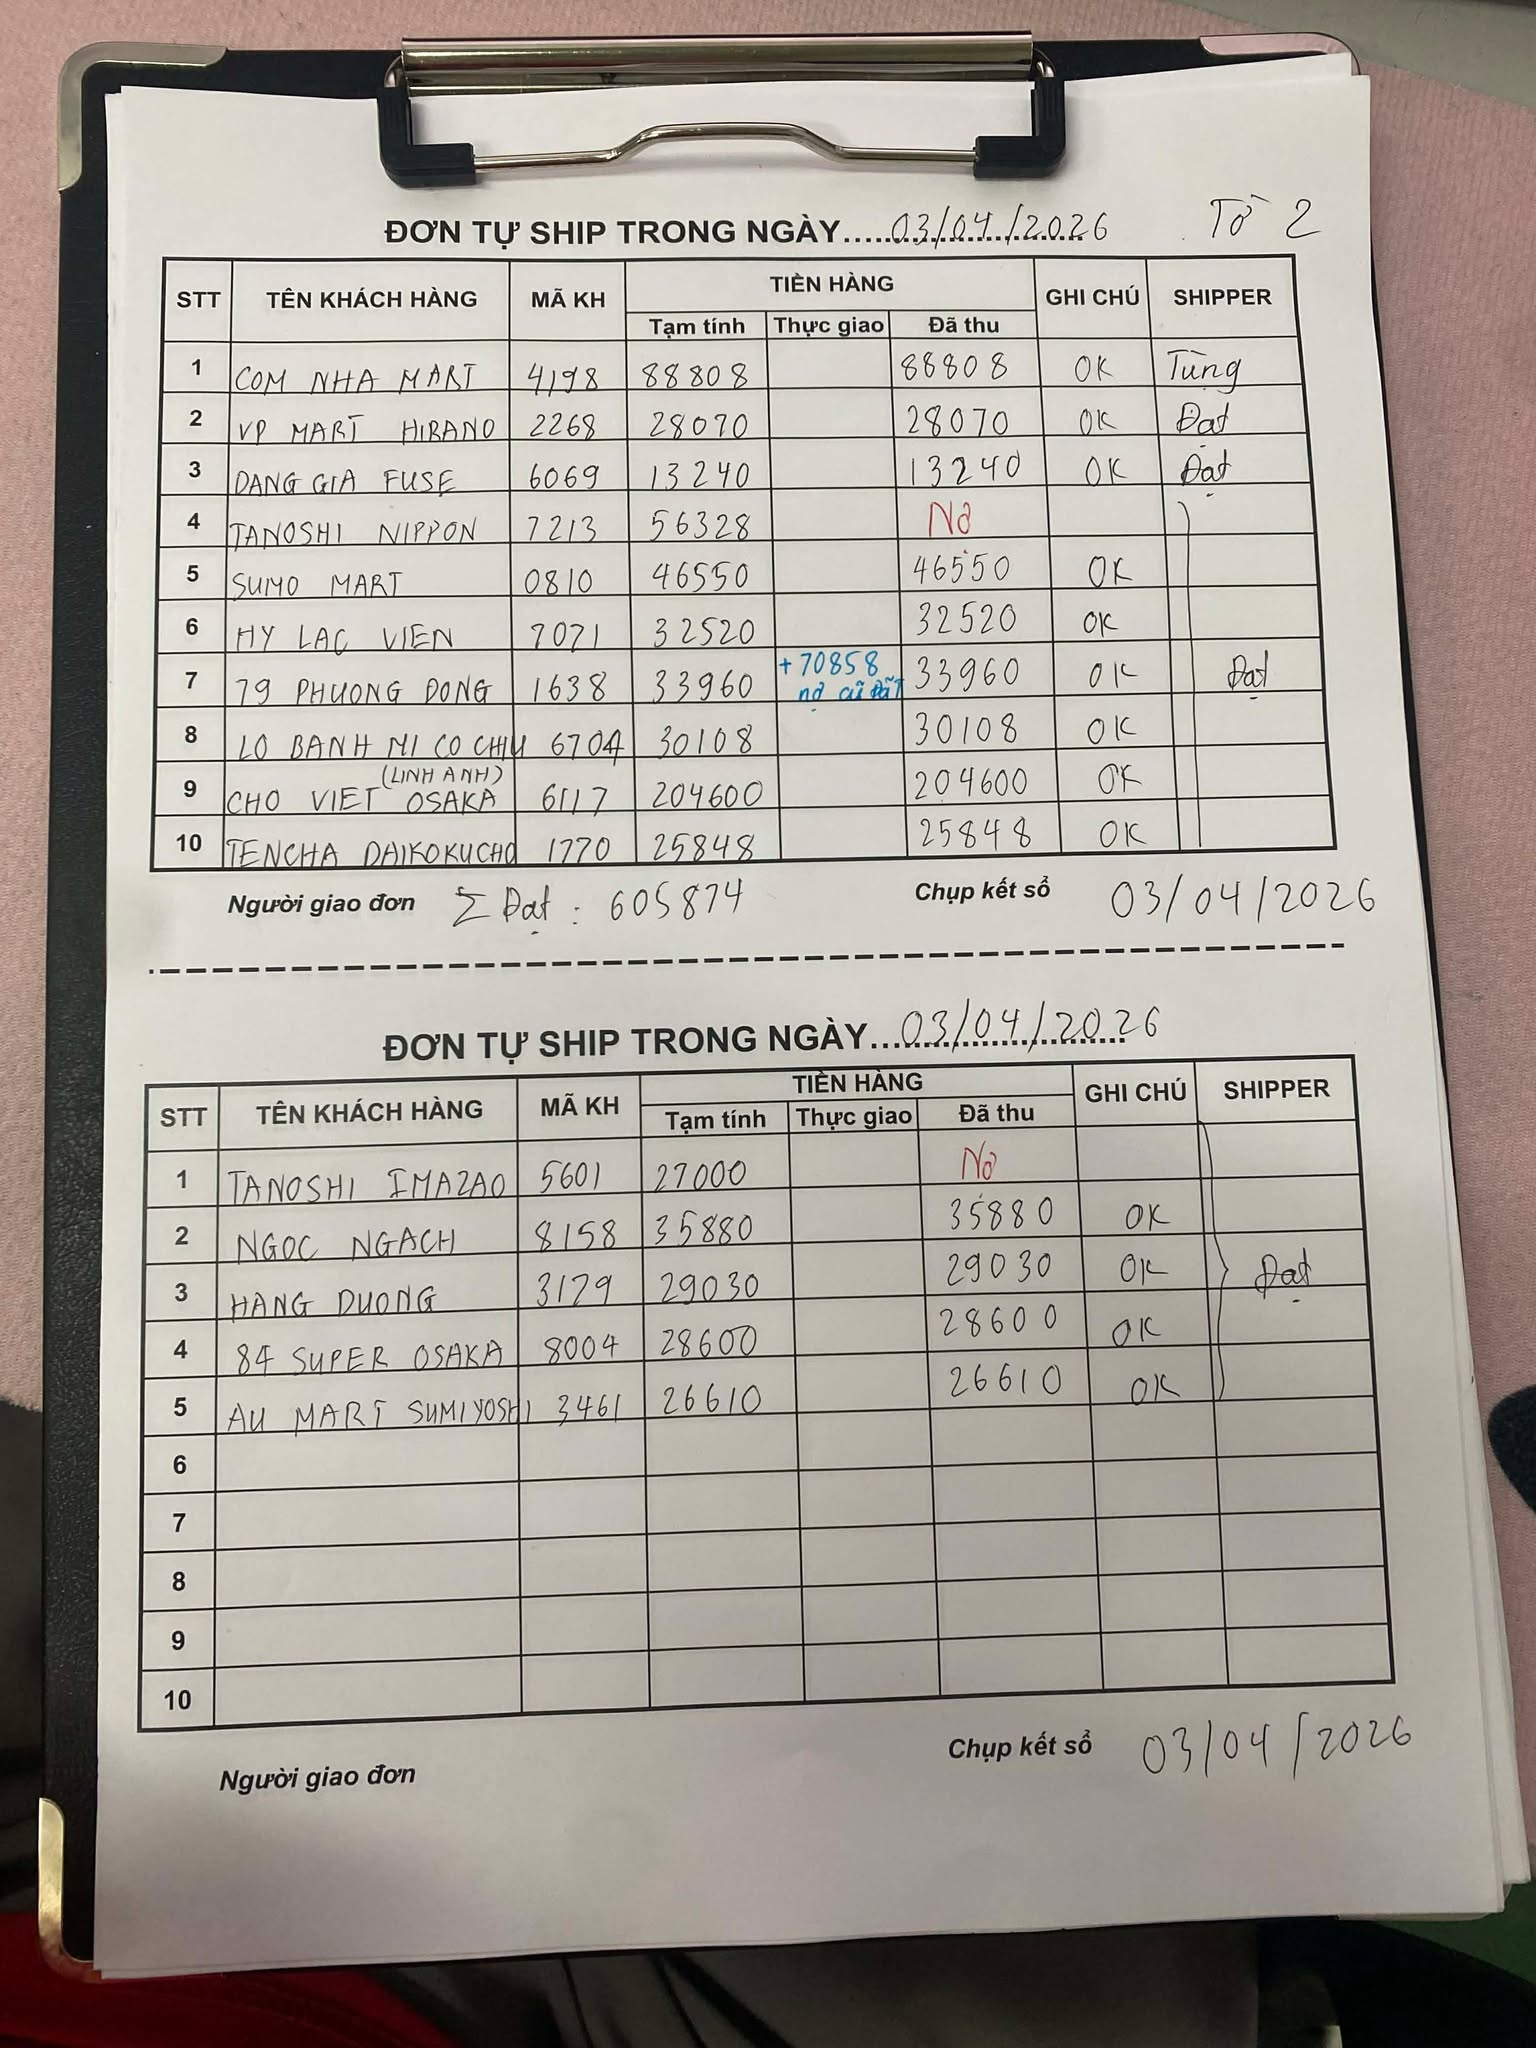 ĐƠN TỰ SHIP TRONG NGÀY 03/04/2026 Tờ 2
STT TÊN KHÁCH HÀNG MÃ KH TIỀN HÀNG GHI CHÚ SHIPPER
Tạm tính Thực giao Đã thu
1 COM NHA MART 4198 88808 88808 OK Tùng
2 VP MART HIRANO 2268 28070 28070 OK Đạt
3 DANG GIA FUSE 6069 13240 13240 OK Đạt
4 TANOSHI NIPPON 7213 56328 Nợ
5 SUMO MART 0810 46550 46550 OK
6 HY LAC VIEN 7071 32520 32520 OK
7 79 PHUONG DONG 1638 33960 +70858 33960 OK Đạt
nợ cũ đã T
8 LO BANH MI CO CHIU 6704 30108 30108 OK
(LINH ANH)
9 CHO VIET OSAKA 6117 204600 204600 OK
10 TENCHA DAIKOKUCHO 1770 25848 25848 OK
Người giao đơn Σ Đạt : 605874 Chụp kết sổ 03/04/2026
ĐƠN TỰ SHIP TRONG NGÀY 03/04/2026
STT TÊN KHÁCH HÀNG MÃ KH TIỀN HÀNG GHI CHÚ SHIPPER
Tạm tính Thực giao Đã thu
1 TANOSHI IMAZAO 5601 27000 Nợ
2 NGOC NGACH 8158 35880 35880 OK
3 HANG DUONG 3179 29030 29030 OK Đạt
4 84 SUPER OSAKA 8004 28600 28600 OK
5 AU MART SUMIYOSHI 3461 26610 26610 OK
6
7
8
9
10
Người giao đơn Chụp kết sổ 03/04/2026